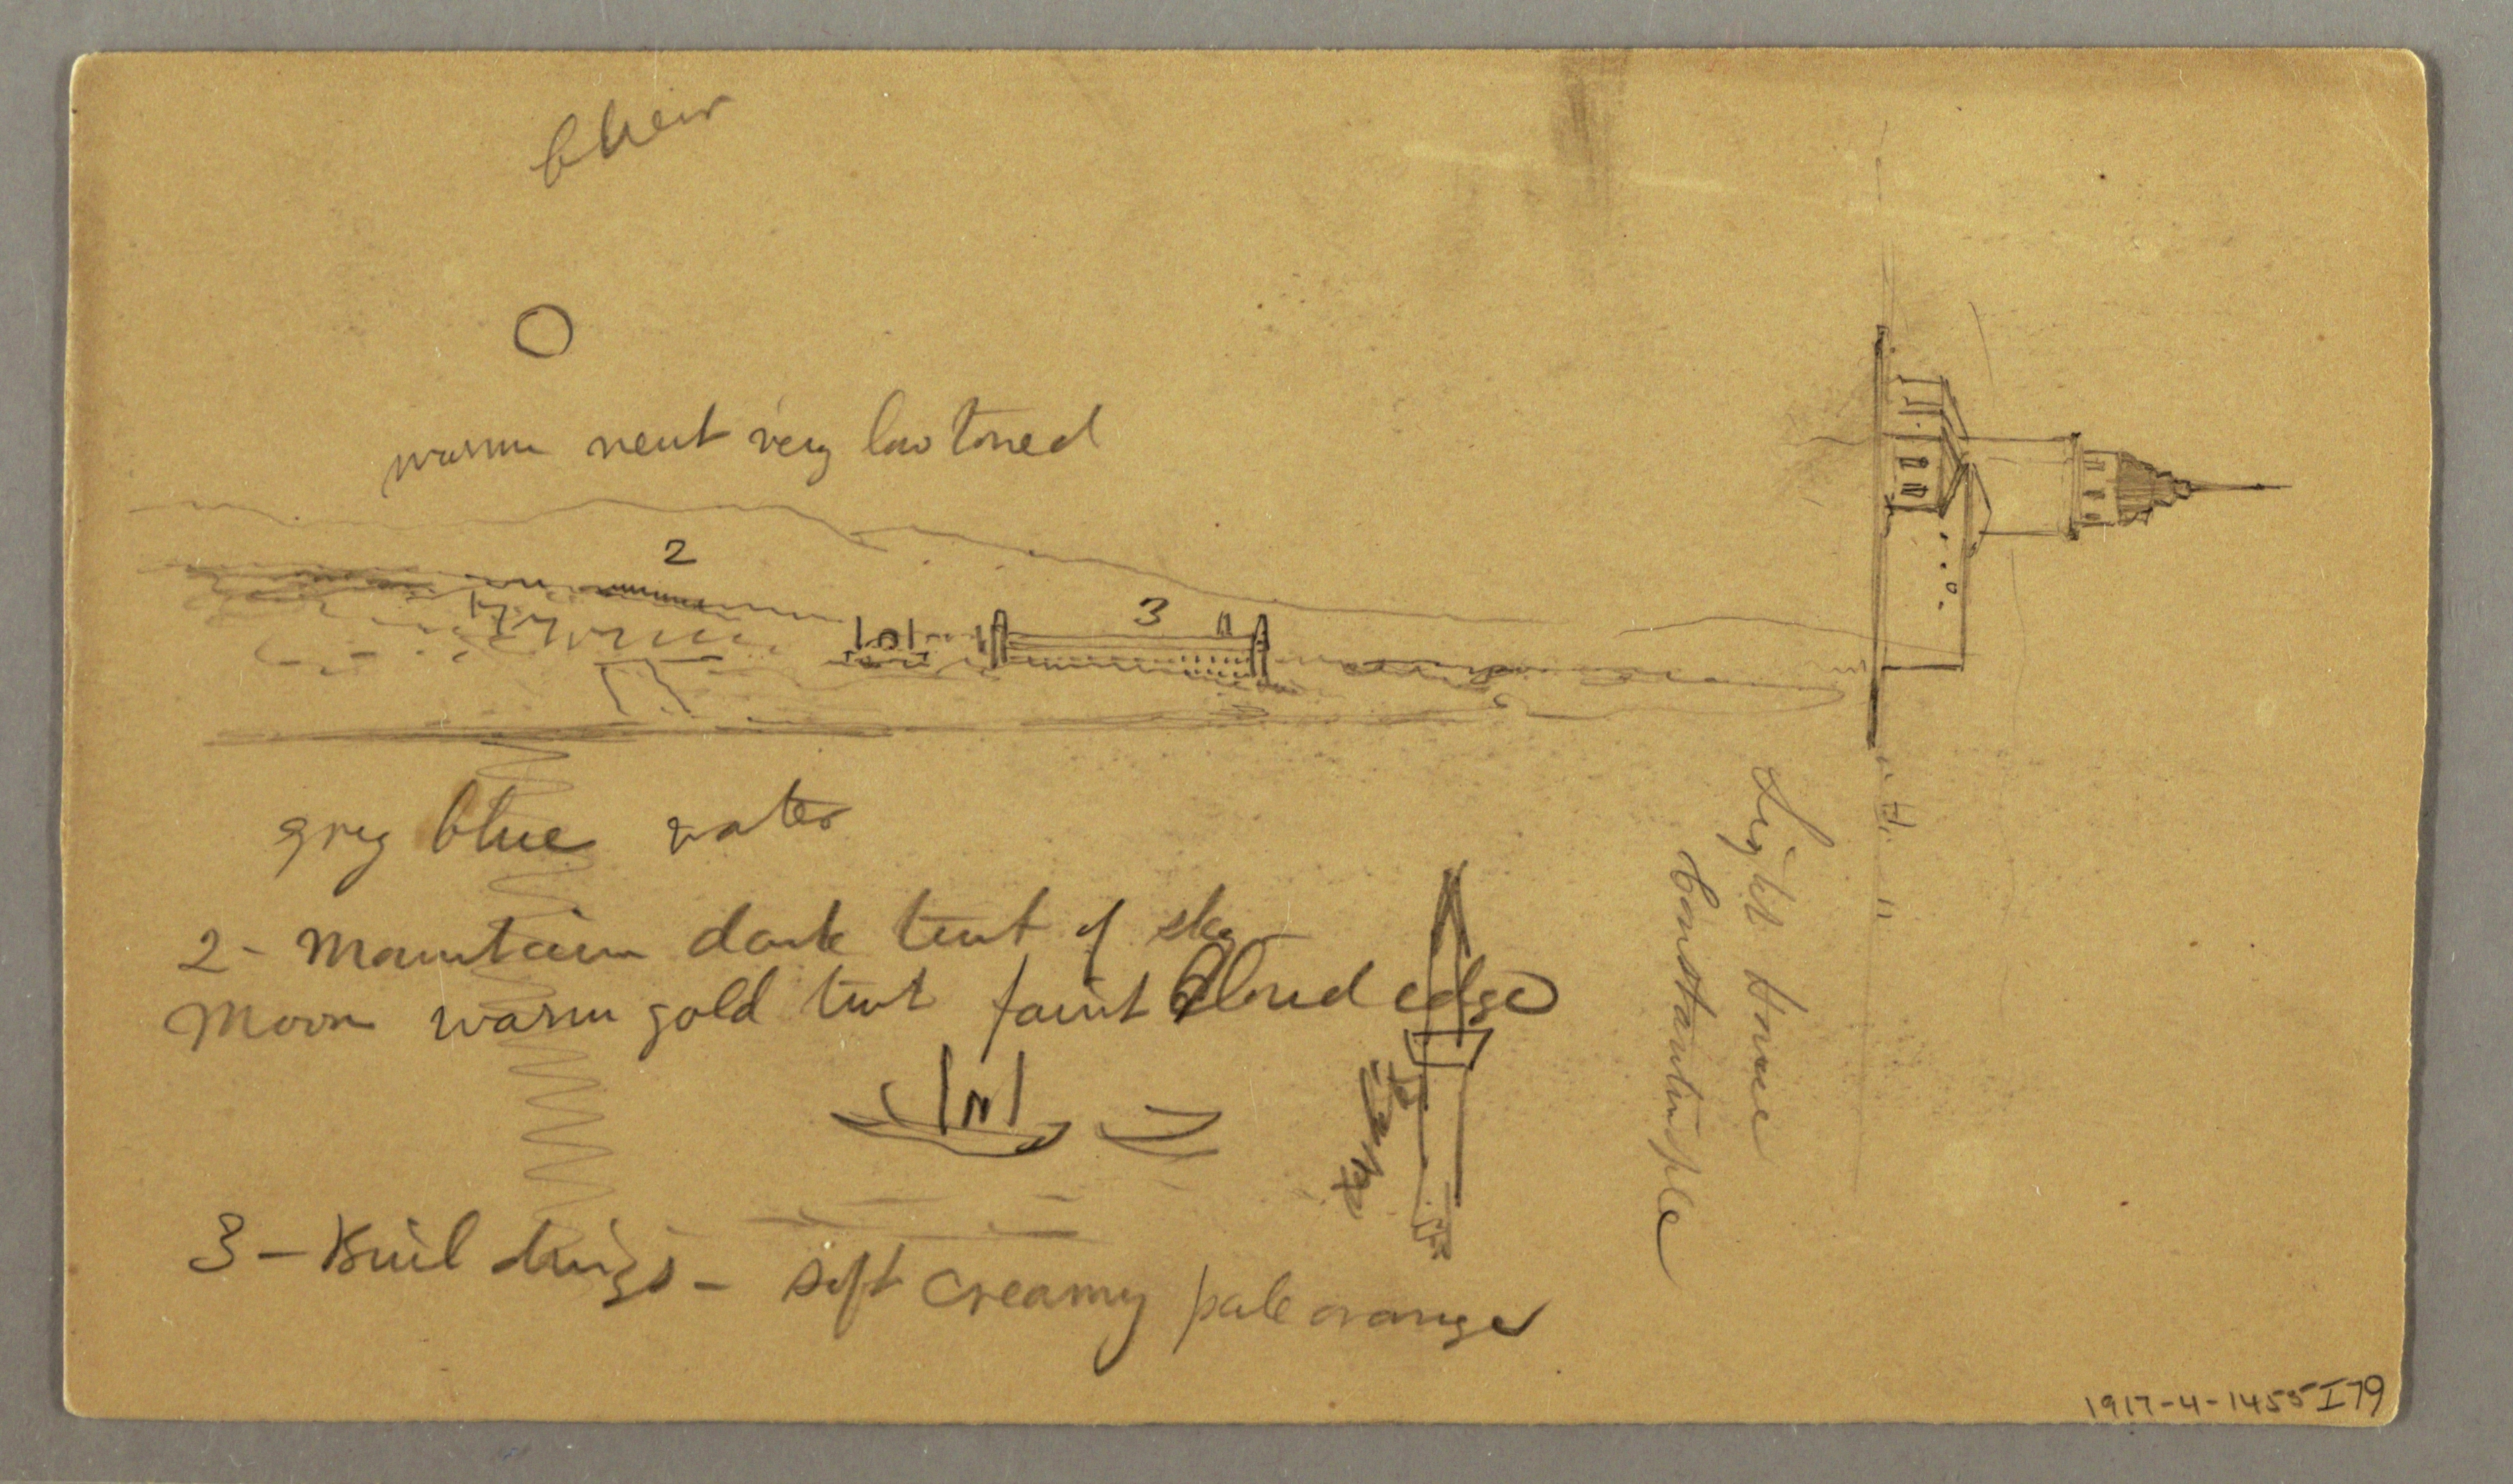 clear
warm neut very low toned
2
3
grey blue water
2 - Mountain dark tint of sky
Moon warm gold tint faint cloud edge
3 - Buildings - soft creamy pale orange
Light House
Constantinople
1917-4-1455 I79